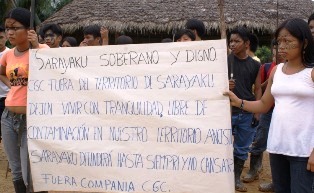 SARAYAKU SOBERANO Y DIGNO
CGC FUERA DEL TERRITORIO DE SARAYAKU
DEJEN VIVIR CON TRANQUILIDAD, LIBRE DE
CONTAMINACIÓN EN NUESTRO TERRITORIO
SARAYAKU DEFENDERÁ HASTA SIEMPRE Y NO CANSARE
FUERA COMPANIA CGC.